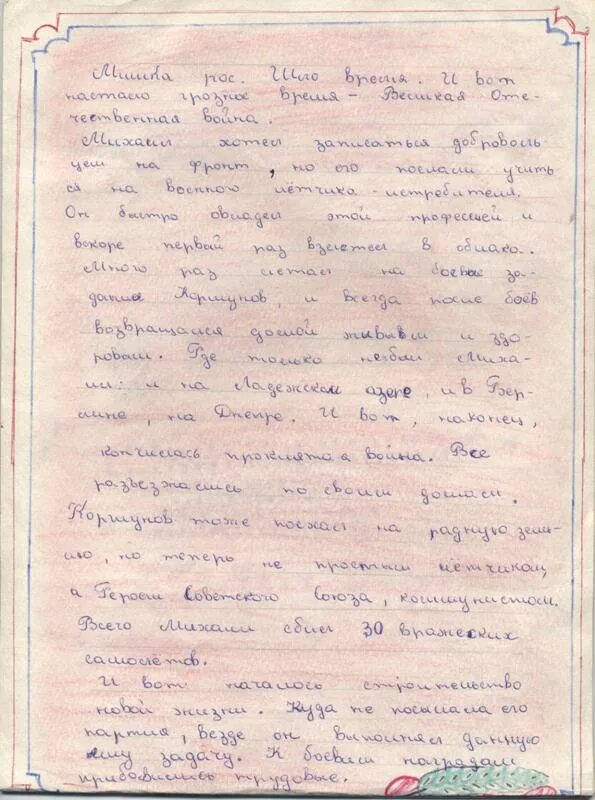 Мишка рос. Шло время. И вот
настало грозное время – Великая Оте-
чественная война.
Михаил хотел записаться доброволь-
цем на фронт, но его послали учить
ся на военного лётчика-истребителя.
Он быстро овладел этой профессией и
вскоре первый раз взлетел в облако.
Много раз летал на боевые за-
дания Коршунов, и всегда после боёв
возвращался домой живым и здо-
ровым. Где только не был Миха-
ил: и на Ладежском озере, и в Бер-
лине, на Днепре. И вот, наконец,
кончилась проклятая война. Все
разъезжались по своим домам.
Коршунов тоже поехал на радную зем-
лю, но теперь не простым лётчиком,
а Героем Советского Союза, коммунистом.
Всего Михаил сбил 30 вражеских
самолётов.
И вот началось строительство
новой жизни. Куда не посылала его
партия, везде он выполнял данную
ему задачу. К боевым наградам
прибавились трудовые.